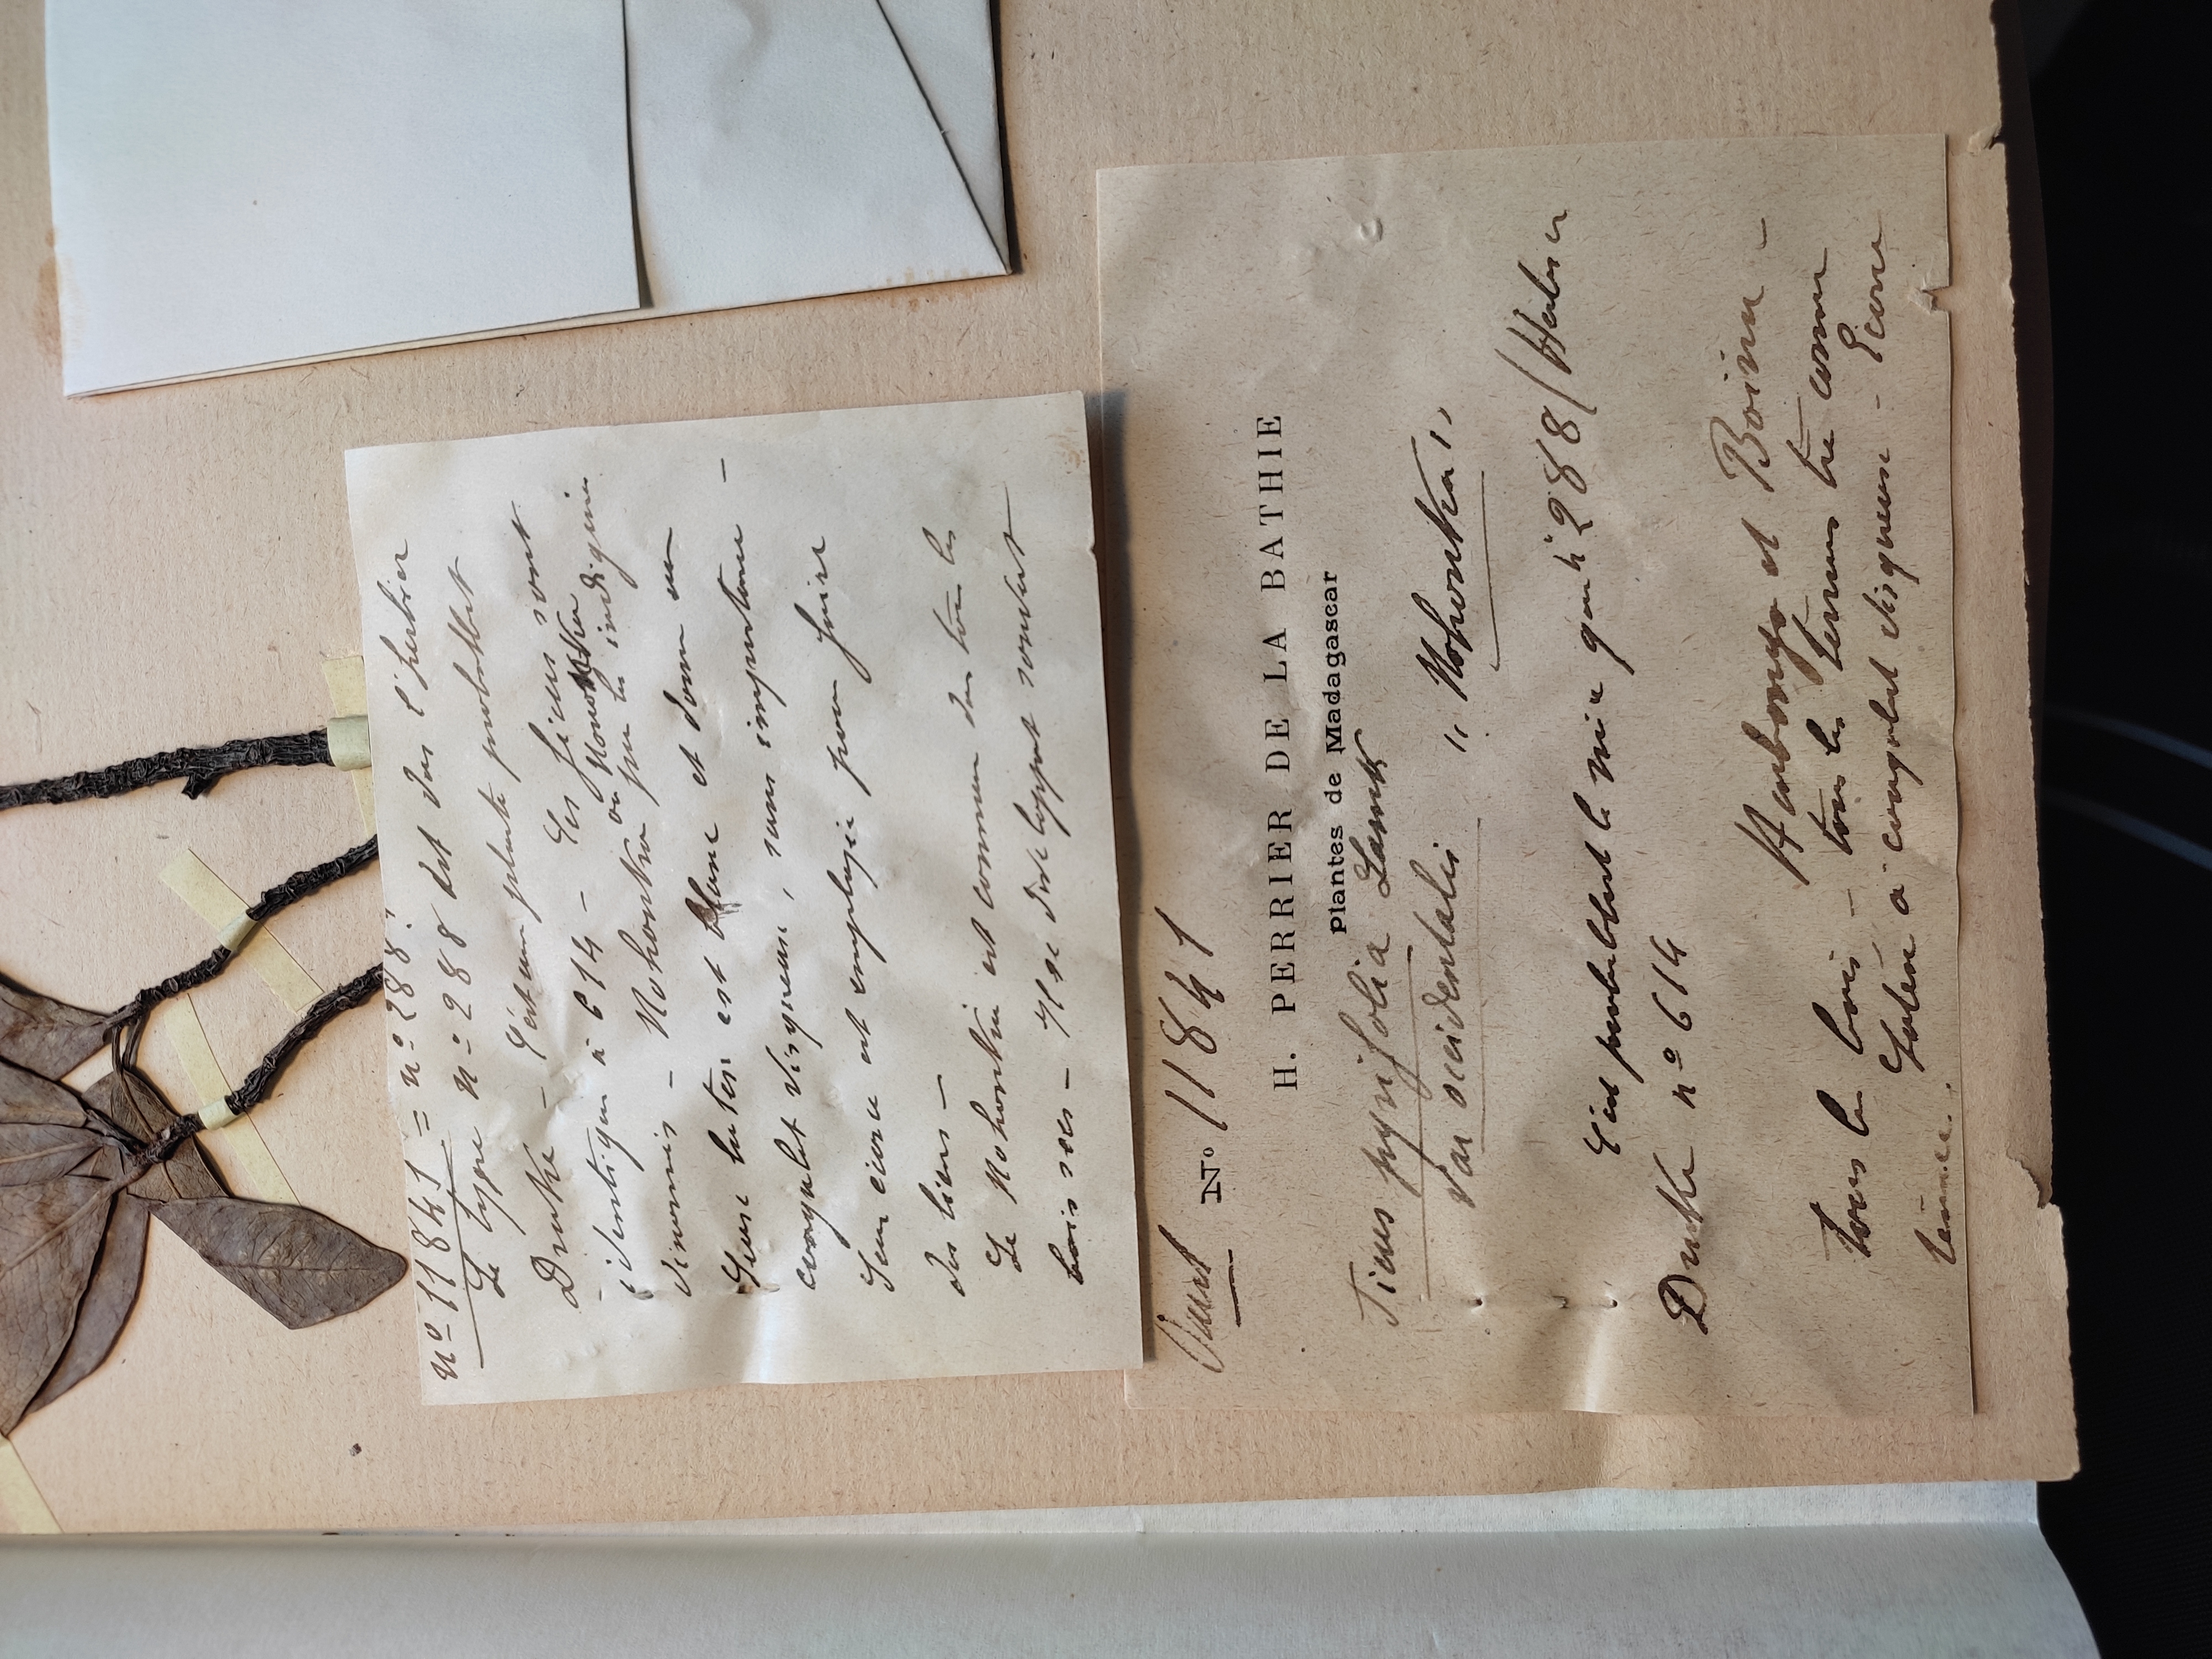 n° 11841 = n° 288 !
Le type n° 288 est dans l'herbier
Drake - C'est une plante probablt
identique à 614 - Ces ficus sont
dénommés - Nohondra ou par les indigènes
Leur latex est blanc et donne un
coagulat visqueux, sans importance -
Leur écorce est employée pour faire
des liens -
Le Nohondra est commun dans tous les
bois secs - Il se développe souvent
N° 11841
H. PERRIER DE LA BATHIE
Plantes de Madagascar
Ficus pyrifolia Lamck
var occidentalis " Nohondra "
C'est probablement le même que n° 288 (Herbier
Drake n° 614
Ambongo et Boina -
tous les bois - tous les terrains très commun
Latex à coagulat visqueux - Écorce